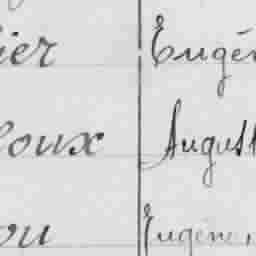 ier Eugén
oux August
ou Eugène,